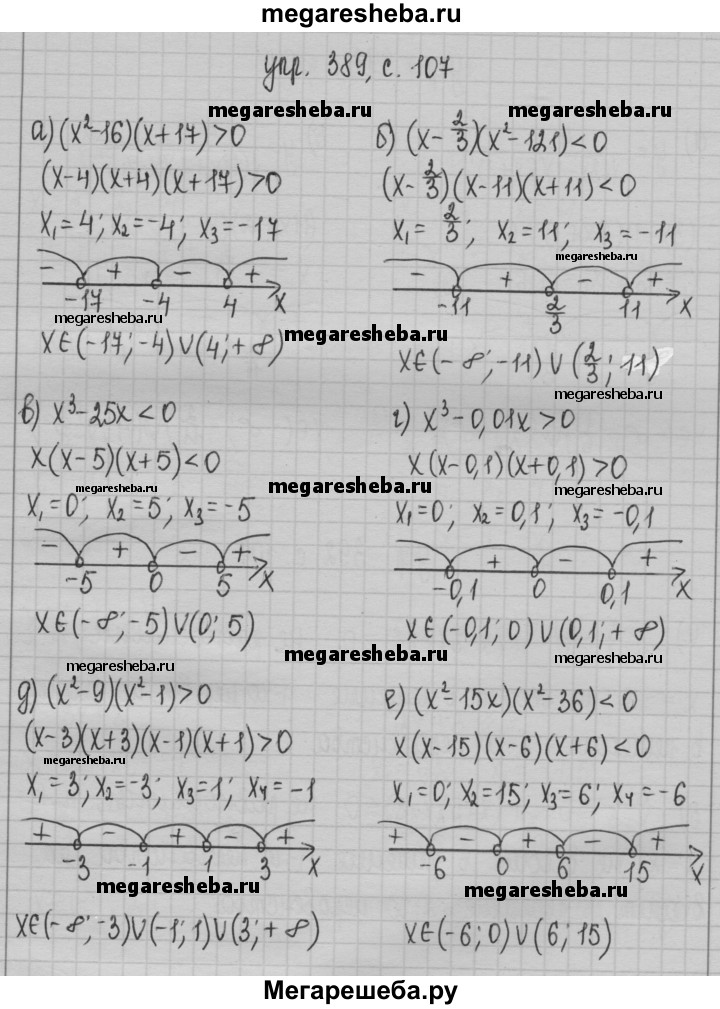 megaresheba.ru
упр. 389, с. 107
megaresheba.ru
megaresheba.ru
а) (x²-16)(x+17)>0
(x-4)(x+4)(x+17)>0
x₁=4; x₂=-4; x₃=-17
- + - +
-17 -4 4 x
megaresheba.ru
x∈(-17;-4)∪(4;+∞)
megaresheba.ru
б) (x-2/3)(x²-121)<0
(x-2/3)(x-11)(x+11)<0
x₁=2/3; x₂=11; x₃=-11
megaresheba.ru
- + - +
-11 2/3 11 x
x∈(-∞;-11)∪(2/3;11)
megaresheba.ru
в) x³-25x<0
x(x-5)(x+5)<0
megaresheba.ru
megaresheba.ru
x₁=0; x₂=5; x₃=-5
- + - +
-5 0 5 x
x∈(-∞;-5)∪(0;5)
г) x³-0,01x>0
x(x-0,1)(x+0,1)>0
megaresheba.ru
x₁=0; x₂=0,1; x₃=-0,1
- + - +
-0,1 0 0,1 x
x∈(-0,1;0)∪(0,1;+∞)
megaresheba.ru
megaresheba.ru
megaresheba.ru
д) (x²-9)(x²-1)>0
(x-3)(x+3)(x-1)(x+1)>0
megaresheba.ru
x₁=3; x₂=-3; x₃=1; x₄=-1
+ - + - +
-3 -1 1 3 x
megaresheba.ru
x∈(-∞;-3)∪(-1;1)∪(3;+∞)
е) (x²-15x)(x²-36)<0
x(x-15)(x-6)(x+6)<0
x₁=0; x₂=15; x₃=6; x₄=-6
+ - + - +
-6 0 6 15 x
megaresheba.ru
x∈(-6;0)∪(6;15)
Мегарешеба.ру